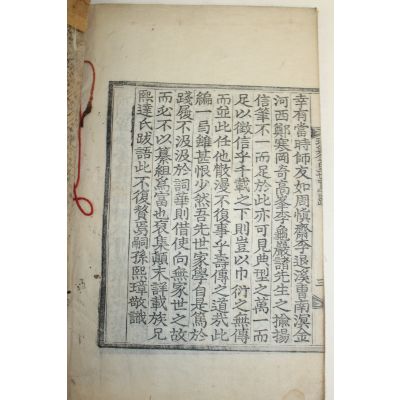 幸有當時師友如周愼齋李退溪曺南溟金
河西鄭寒岡奇高峯李龜巖諸先生之揄揚
信筆不一而足於此亦可見典型之萬一而
足以徵信乎千載之下則豈以巾衍之無傳
而並此任他散漫不復事乎壽傳之道哉此
編一局雖甚恨少然吾先世家學自是篤於
踐履不汲汲於詞華則借使向無家世之故
而必不以纂組爲富也裒集顚末詳載族兄
熙達氏跋語此不復贅焉嗣孫熙璋敬識